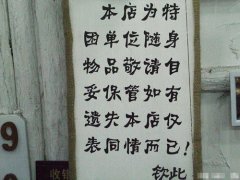 本店为特
困单位随身
物品敬请自
妥保管如有
遗失本店仅
表同情而已!
钦此
9
收银